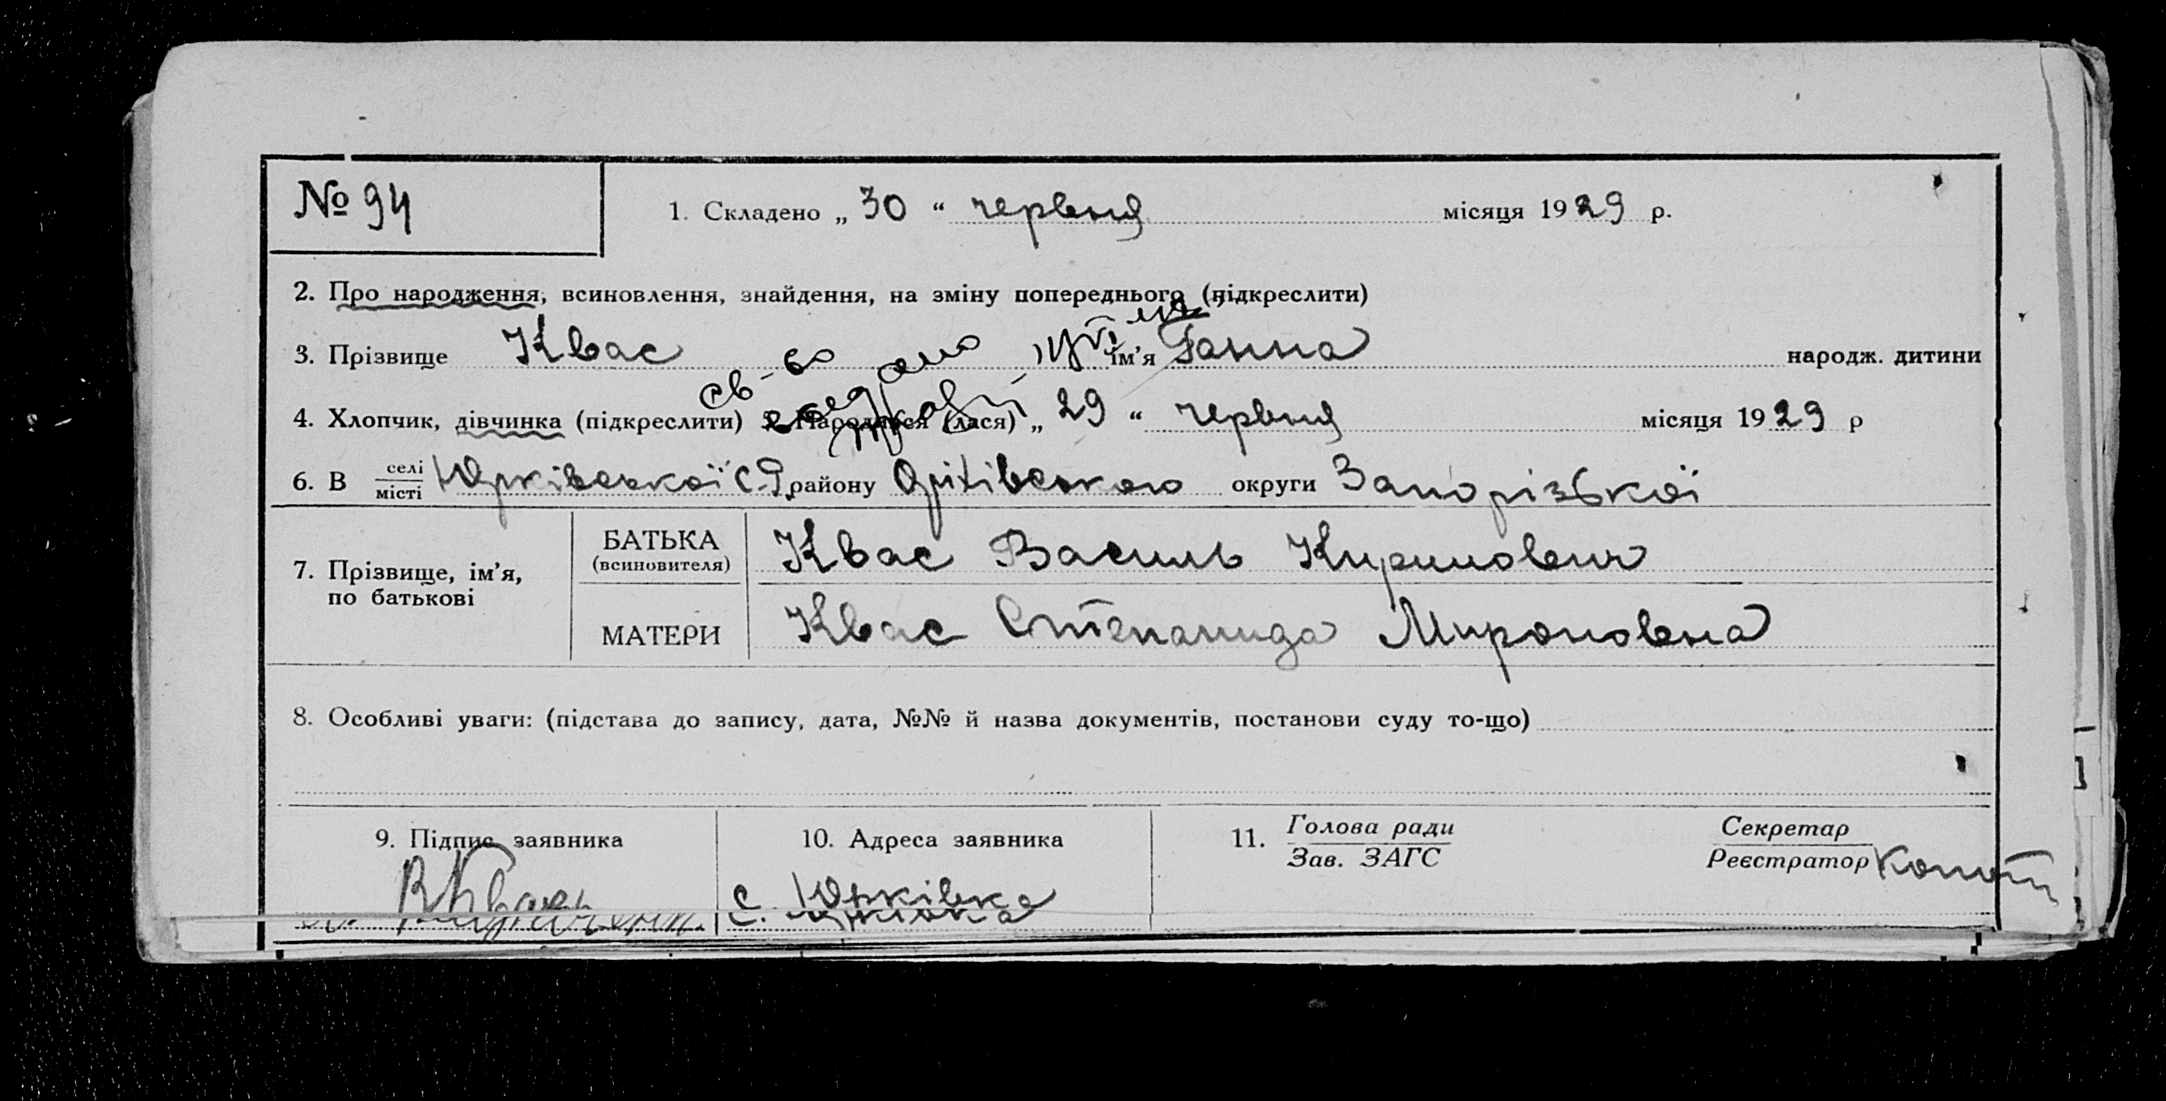 № 94
1. Складено „ 30 “ червня місяця 1929 р.
2. Про народження, всиновлення, знайдення, на зміну попереднього (підкреслити)
3. Прізвище Квас ім’я Ганна народж. дитини
св-во
4. Хлопчик, дівчинка (підкреслити) 5. Народився (лася) „ 29 “ червня місяця 1929 р
6. В селі/місті Юрківської С.Р. району Оріхівського округи Запорізької
7. Прізвище, ім’я, по батькові
БАТЬКА (всиновителя) Квас Василь Кирилович
МАТЕРИ Квас Степанида Мироновна
8. Особливі уваги: (підстава до запису, дата, №№ й назва документів, постанови суду то-що)
9. Підпис заявника
10. Адреса заявника
11. Голова ради / Зав. ЗАГС
Секретар / Реєстратор
В Квас
с. Юрківка